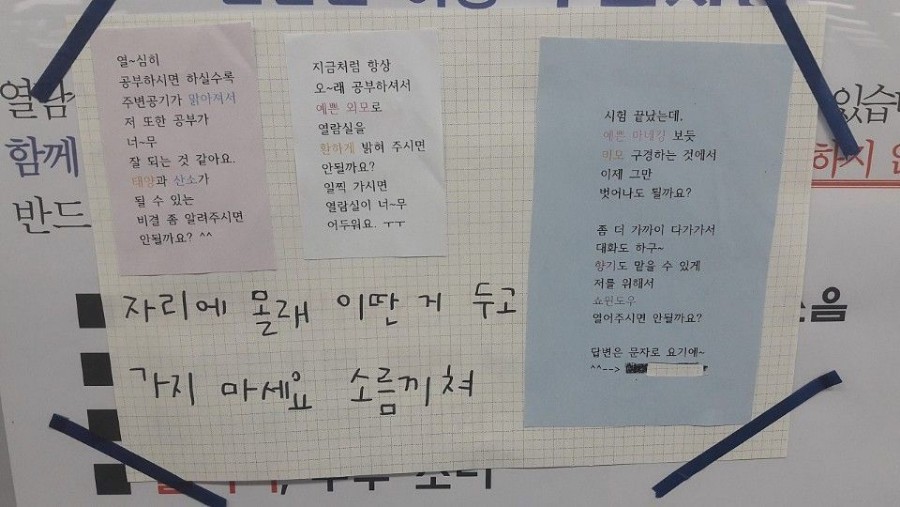 열~심히
공부하시면 하실수록
주변공기가 맑아져서
저 또한 공부가
너~무
잘 되는 것 같아요.
태양과 산소가
될 수 있는
비결 좀 알려주시면
안될까요? ^^
지금처럼 항상
오~래 공부하셔서
예쁜 외모로
열람실을
환하게 밝혀 주시면
안될까요?
일찍 가시면
열람실이 너~무
어두워요. ㅜㅜ
시험 끝났는데,
예쁜 마네킹 보듯
미모 구경하는 것에서
이제 그만
벗어나도 될까요?
좀 더 가까이 다가가서
대화도 하구~
향기도 맡을 수 있게
저를 위해서
쇼윈도우
열어주시면 안될까요?
답변은 문자로 요기에~
^^-->
자리에 몰래 이딴 거 두고
가지 마세요 소름끼쳐
열람
함께
반드
있습
하지
소음
소리